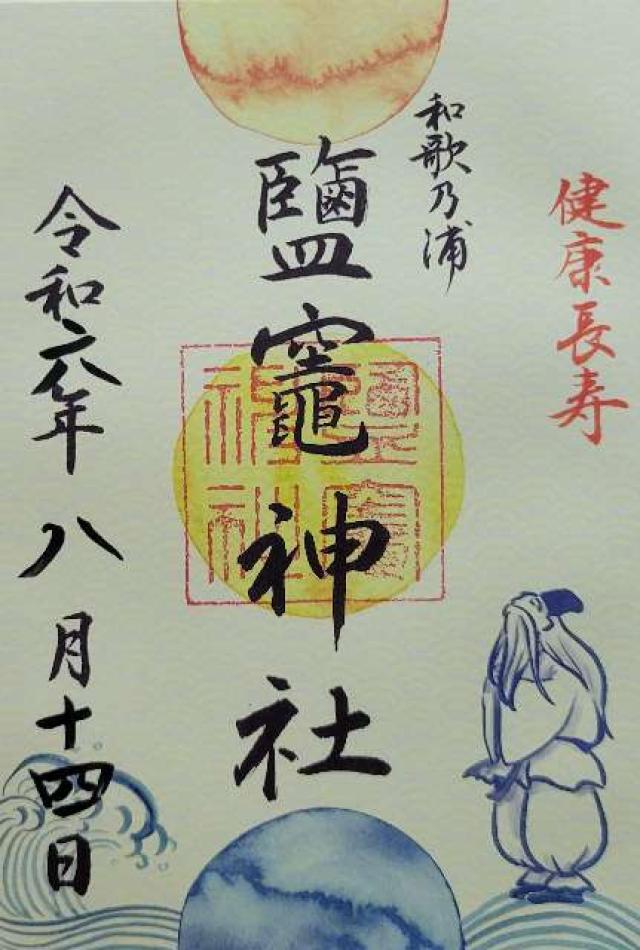 健康長寿
和歌乃浦
鹽竈神社
令和六年八月十四日